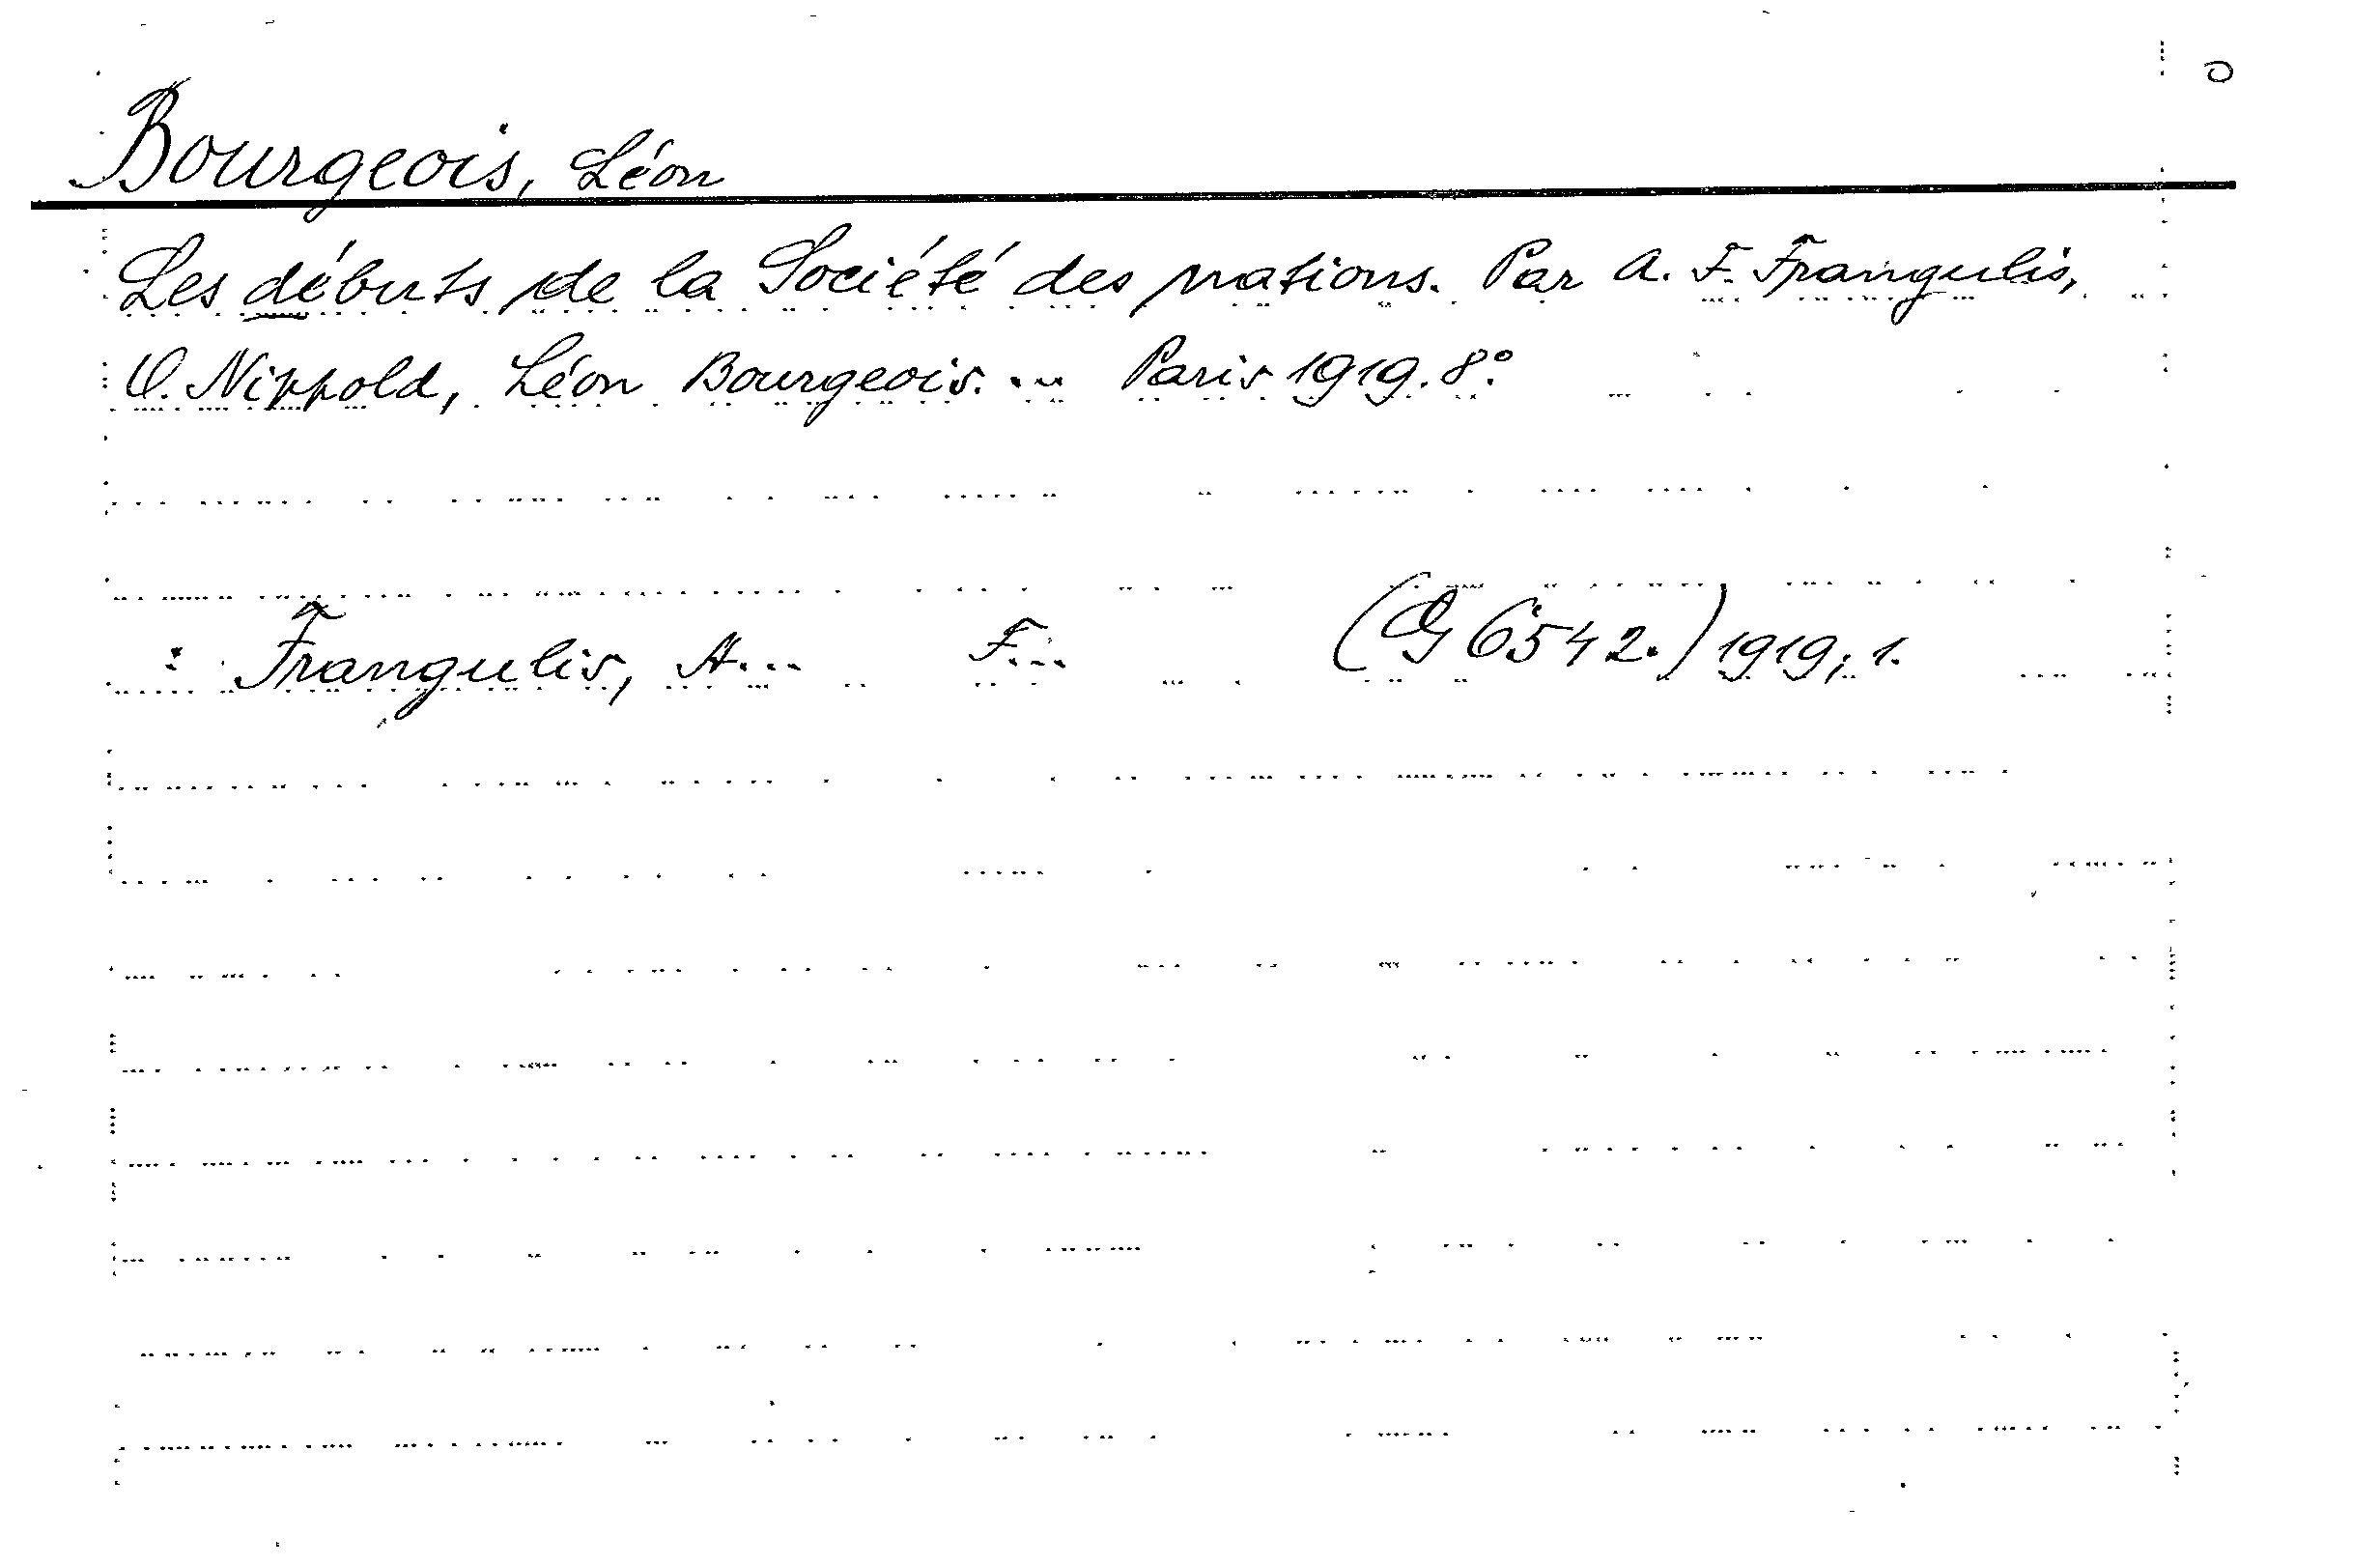 Bourgeois, Léon
Les débuts de la Société des nations. Par A. F. Frangulis,
O. Nippold, Léon Bourgeois. ... Paris 1919. 8:o
: Frangulis, A... F... (G 6542.) 1919; 1.